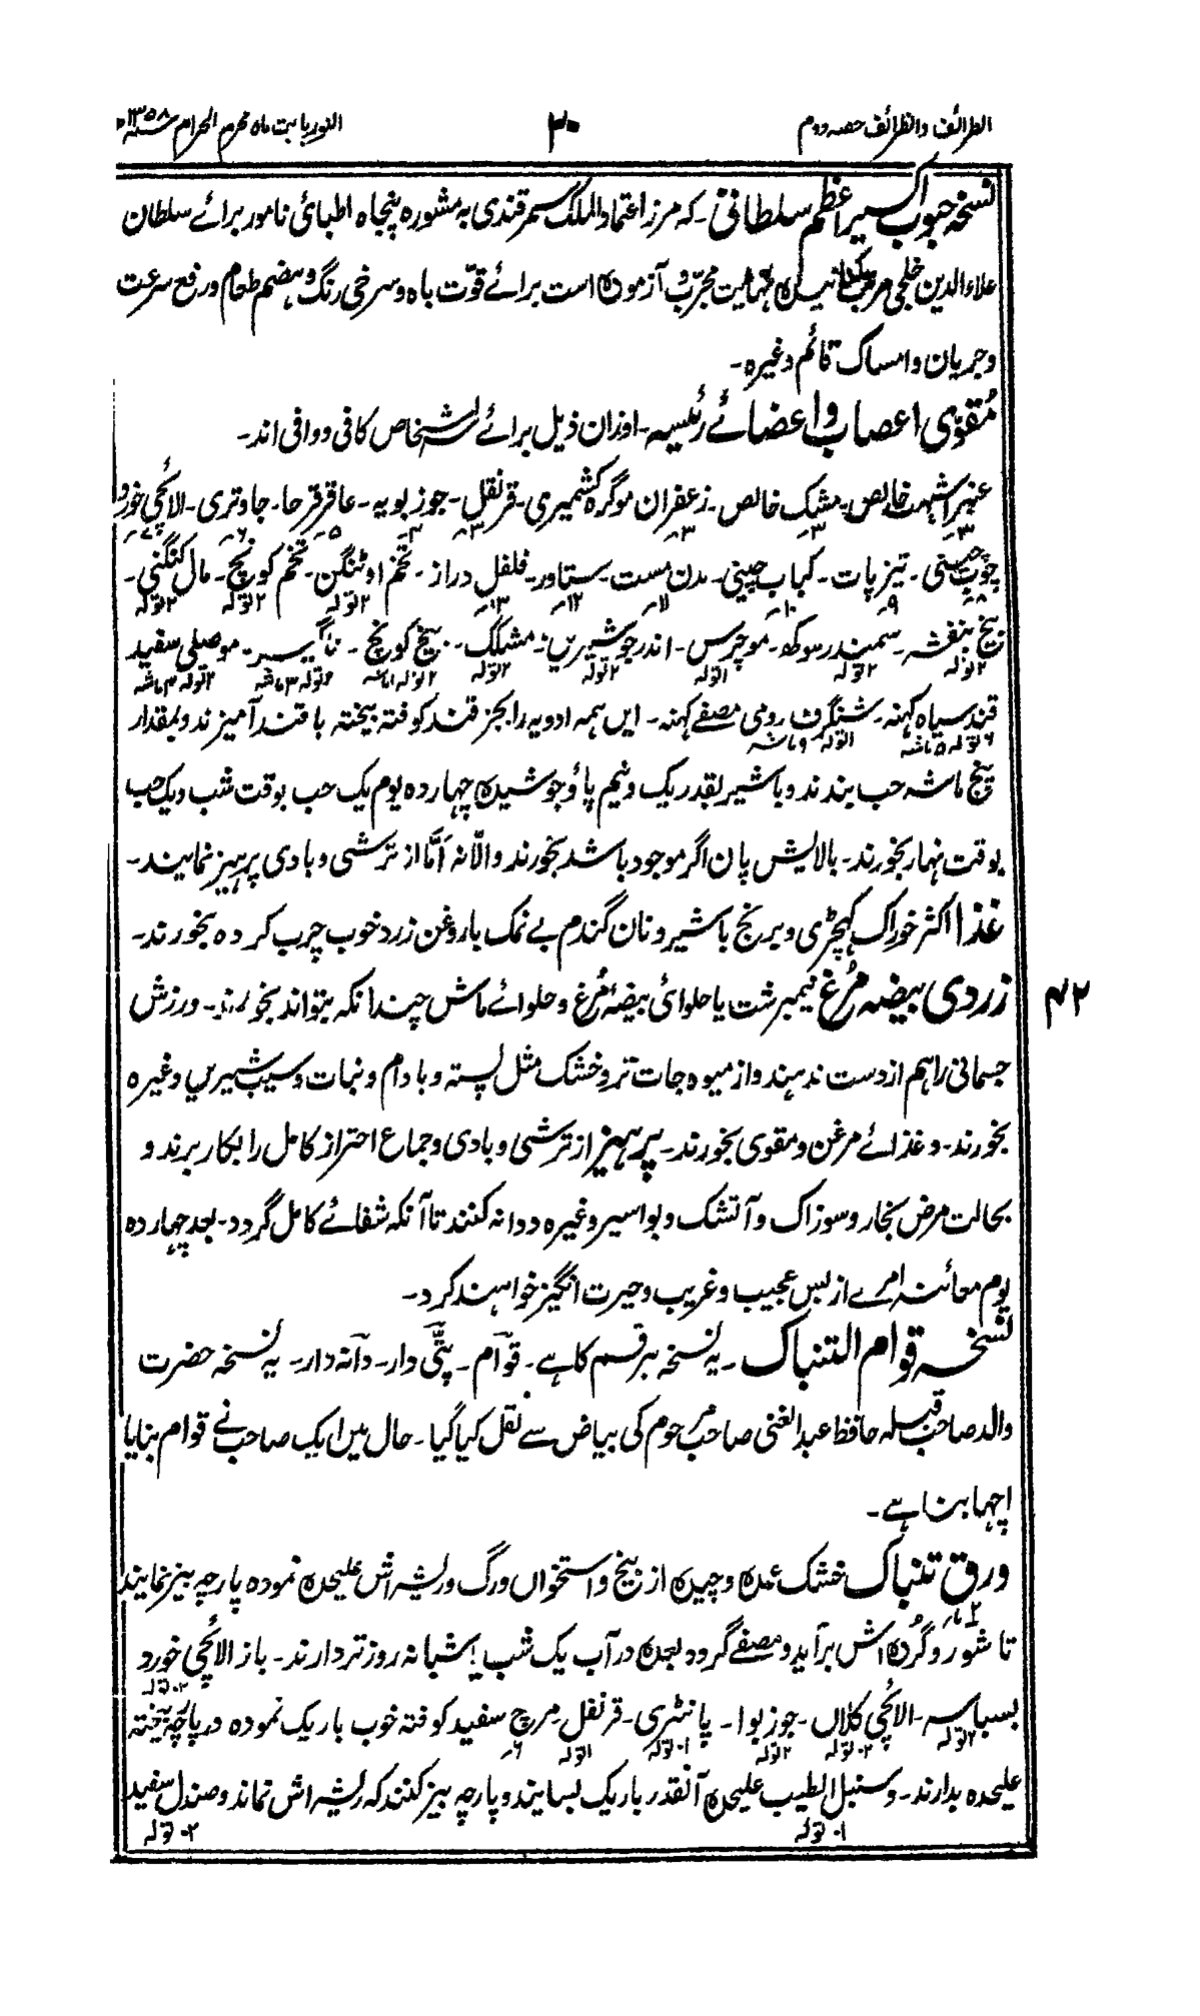 الطرائف والظرائف حصہ دوم
۲۰
النور بابت ماہ محرم الحرام ۱۳۵۸ھ
نسخہ حبوب اکسیر اعظم سلطانی ۔ کہ مرزا اعتماد الملک سمرقندی بہ مشورہ پنجاہ اطبائی نامور برائے سلطان
علاءالدین خلجی مرکب کنانیدہ نہایت مجرّب و آزمودہ است برائے قوّت باہ و سرخی رنگ و ہضم طعام و رفع سرعت
و جریان و امساک قائم وغیرہ ۔
مُقوّی اعصاب و اعضائے رئیسہ ۔ اوزان ذیل برائے اشخاص کافی و وافی اند ۔
عنبر اشہب خالص ۔ مشک خالص ۔ زعفران موگرہ کشمیری ۔ قرنفل ۔ جوزبویہ ۔ عاقرقرحا ۔ جاوتری ۔ الائچی خورد
۳؍ ۳؍ ۳؍ ۳؍ ۴؍ ۵؍ ۶؍ ۷؍
چوب چینی ۔ تیزپات ۔ کباب چینی ۔ مدن مست ۔ ستاور ۔ فلفل دراز ۔ تخم اوٹنگن ۔ تخم کونچ ۔ مال کنگنی ۔
۸؍ ۹؍ ۱۰؍ ۱۱؍ ۱۲؍ ۱۳؍ ۲تولہ ۲تولہ ۲تولہ
بیخ بنفشہ ۔ سمندر سوکھ ۔ موچرس ۔ اندرجو شیریں ۔ مشکک ۔ بیخ کونچ ۔ ناگیسر ۔ موصلی سفید
۲تولہ ۲تولہ ۱تولہ ۲تولہ ۲تولہ
قند سیاہ کہنہ ۔ شنگرف رومی مصفےٰ کہنہ ۔ ایں ہمہ ادویہ را بجز قند کوفتہ بیختہ با قند آمیزند و بمقدار
۶تولہ ۵ماشہ ۱تولہ ۹ماشہ
پنج ماشہ حب بندند و با شیر بقدر یک و نیم پاؤ جوشیدہ چہاردہ یوم یک حب بوقت شب و یک حب
بوقت نہار بخورند ۔ بالایش پان اگر موجود باشد بخورند والّا نہ اَمَّا از ترشی و بادی پرہیز نمایند ۔
غذا اکثر خوراک کھچڑی و برنج با شیر و نان گندم بے نمک با روغن زرد خوب چرب کردہ بخورند ۔
زردی بیضہ مُرغ نیمبرشت یا حلوائی بیضۂ مُرغ و حلوائے ماش چندانکہ بتواند بخورند ۔ ورزش
۴۲
جسمانی را ہم از دست ندہند و از میوہ جات تر و خشک مثل پستہ و بادام و نبات و سیب شیریں وغیرہ
بخورند ۔ و غذائے مرغن و مقوی بخورند ۔ پرہیز از ترشی و بادی و جماع احتراز کامل را بکار برند و
بحالت مرض بخار و سوزاک و آتشک و بواسیر وغیرہ دوا نہ کنند تا آنکہ شفائے کامل گردد ۔ بعد چہاردہ
یوم معائنہ امرے از بس عجیب و غریب و حیرت انگیز خواہند کرد ۔
نسخہ قوام التنباک ۔ یہ نسخہ ہر قسم کا ہے ۔ قوام ۔ پتّی دار ۔ دانہ دار ۔ یہ نسخہ حضرت
والد صاحب قبلہ حافظ عبدالغنی صاحب مرحوم کی بیاض سے نقل کیا گیا ۔ حال میں ایک صاحب نے قوام بنایا
اچھا بنا ہے ۔
ورق تنباک خشک عمدہ و چیدہ از بیخ و استخواں ورگ و ریشہ اش علیحدہ نمودہ پارچہ بیز نمایند
تا شور و گردہ اش برآید و مصفےٰ گردد بعدہ در آب یک شب شبانہ روز تر دارند ۔ باز الائچی خورد
۲۰تولہ
بسباسہ ۔ الائچی کلاں ۔ جوزبوا ۔ پانٹری ۔ قرنفل ۔ مرچ سفید کوفتہ خوب باریک نمودہ در پارچہ بیختہ
۲تولہ ۲۰تولہ ۲تولہ ۱۰تولہ ۱تولہ ۶؍
علیحدہ بدارند ۔ و سنبل الطیب علیحدہ آنقدر باریک بسایند و پارچہ بیز کنند کہ ریشہ اش نماند و صندل سفید
۱۰تولہ ۲۰تولہ